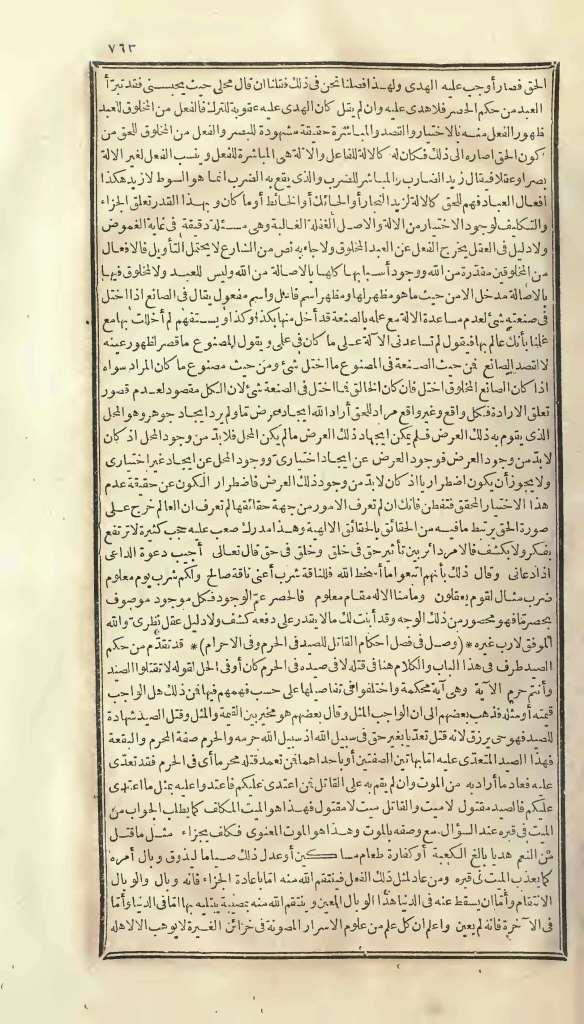 ٧٦٣
الحق فصار أوجب عليه الهدى ولهذا فصلنا نحن فى ذلك فقلنا ان قال محلى حيث يحبسنى فقد تبرّأ
العبد من حكم الحصر فلا هدى عليه وان لم يقل كان الهدى عليه عقوبة للترك فالفعل من المخلوق للعبد
ظهور الفعل منه بالاختيار والقصد والمباشرة حقيقة مشهودة للبصر والفعل من المخلوق للحق من
كون الحق اصاره الى ذلك فكان له كالآلة للفاعل والآلة هى المباشرة للفعل وينسب الفعل لغير الآلة
بصرا وعقلا فيقال زيد الضارب والمباشر للضرب والذى يقع به الضرب انما هو السوط لا زيد هكذا
أفعال العباد فهم للحق كالآلة لزيد النجار أو الحائك أو الخائط أو ما كان وبهذا القدر تعلق الجزاء
والتكليف لوجود الاختيار من الآلة والاصل الغفلة الغالبة وهى مسئلة دقيقة فى غاية الغموض
ولا دليل فى العقل يخرج الفعل عن العبد المخلوق ولا جاء به نص من الشارع لا يحتمل التأويل فالافعال
من المخلوقين مقدّرة من الله ووجود أسبابها كلها بالاصالة من الله وليس للعبد ولا لمخلوق فيها
بالاصالة مدخل الا من حيث ما هو مظهر لها ومظهر اسم فاعل واسم مفعول يقال فى الصانع اذا اختل
فى صنعته شئ لعدم مساعدة الآلة مع علمه بالصنعة قد أخل منها بكذا وكذا أو يستفهم لم أخللت بها مع
علمنا بأنك عالم بها فيقول لم تساعدنى الآلة على ما كان فى علمى ويقول المصنوع ما قصر لظهور عينه
لا لقصد الصانع فمن حيث الصنعة فى المصنوع ما اختل شئ ومن حيث مصنوع ما كان المراد سواه
اذا كان الصانع المخلوق اختل فان كان الخالق فما اختل فى الصنعة شئ لان الكل مقصود لعدم قصور
تعلق الارادة فكل واقع وغير واقع مراد للحق أراد الله ايجاد عرض ما ولم يرد ايجاد جوهر وهو المحل
الذى يقوم به ذلك العرض فلم يكن ايجاد ذلك العرض ما لم يكن المحل فلا بدّ من وجود المحل اذ كان
لا بدّ من وجود العرض فوجود العرض عن ايجاد اختيارى ووجود المحل عن ايجاد غير اختيارى
ولا يجوز أن يكون اضطراريا اذ كان لا بدّ من وجود ذلك العرض فاضطرار الكون عن حقيقة عدم
هذا الاختيار المحقق فتفطن فانك ان لم تعرف الامور من جهة حقائقها لم تعرف ان العالم خرج على
صورة الحق يرتبط ما فيه من الحقائق بالحقائق الالهية وهذا مدرك صعب عليه حجب كثيرة لا ترتفع
بفكر ولا بكشف فالامر دائر بين تأثير حق فى خلق وخلق فى حق قال تعالى أجيب دعوة الداعى
اذا دعانى وقال ذلك بأنهم اتبعوا ما أسخط الله فللناقة شرب أعنى ناقة صالح ولكم شرب يوم معلوم
ضرب مثال لقوم يعقلون وما منا الا له مقام معلوم فالحصر عمّ الوجود فكل موجود موصوف
بحصر ما فهو محصور من ذلك الوجه وقد أبنت لك ما لا يقدر على دفعه كشف ولا دليل عقل نظرى والله
الموفق لا رب غيره * (وصل فى فصل احكام القاتل للصيد فى الحرم وفى الاحرام) * قد تقدّم من حكم
الصيد طرف فى هذا الباب والكلام هنا فى قتله لا فى صيده فى الحرم كان أو فى الحل لقوله لا تقتلوا الصيد
وأنتم حرم الآية وهى آية محكمة واختلفوا فى تفاصيلها على حسب فهمهم فيها فمن ذلك هل الواجب
قيمته أو مثله فذهب بعضهم الى ان الواجب المثل وقال بعضهم هو مخير بين القيمة والمثل وقتل الصيد شهادة
للصيد فهو حى يرزق لانه قتل تعدّيا بغير حق فى سبيل الله اذ سبيل الله حرمه والحرم صفة المحرم والبقعة
فهذا الصيد المتعدّى عليه اما بهاتين الصفتين أو باحداهما فمن تعمد قتله محرما أى فى الحرم فقد تعدّى
عليه فعاد ما أراد به من الموت وان لم يقم به على القاتل فمن اعتدى عليكم فاعتدوا عليه بمثل ما اعتدى
عليكم فالصيد مقتول لا ميت والقاتل ميت لا مقتول فهذا هو الميت المكلف كما يطلب الجواب من
الميت فى قبره عند السؤال مع وصفه بالموت وهذا هو الموت المعنوى فكلف بجزاء مثل ما قتل
من النعم هديا بالغ الكعبة أو كفارة طعام مساكين أو عدل ذلك صياما ليذوق وبال أمره
كما يعذب الميت فى قبره ومن عاد لمثل ذلك الفعل فينتقم الله منه اما باعادة الجزاء فانه وبال والوبال
الانتقام وأما ان يسقط عنه فى الدنيا هذا الوبال المعين وينتقم الله منه بمصيبة يبتليه بها اما فى الدنيا وأما
فى الآخرة فانه لم يعين واعلم ان كل علم من علوم الاسرار المصونة فى خزائن الغيرة لا يوهب الا لاهله